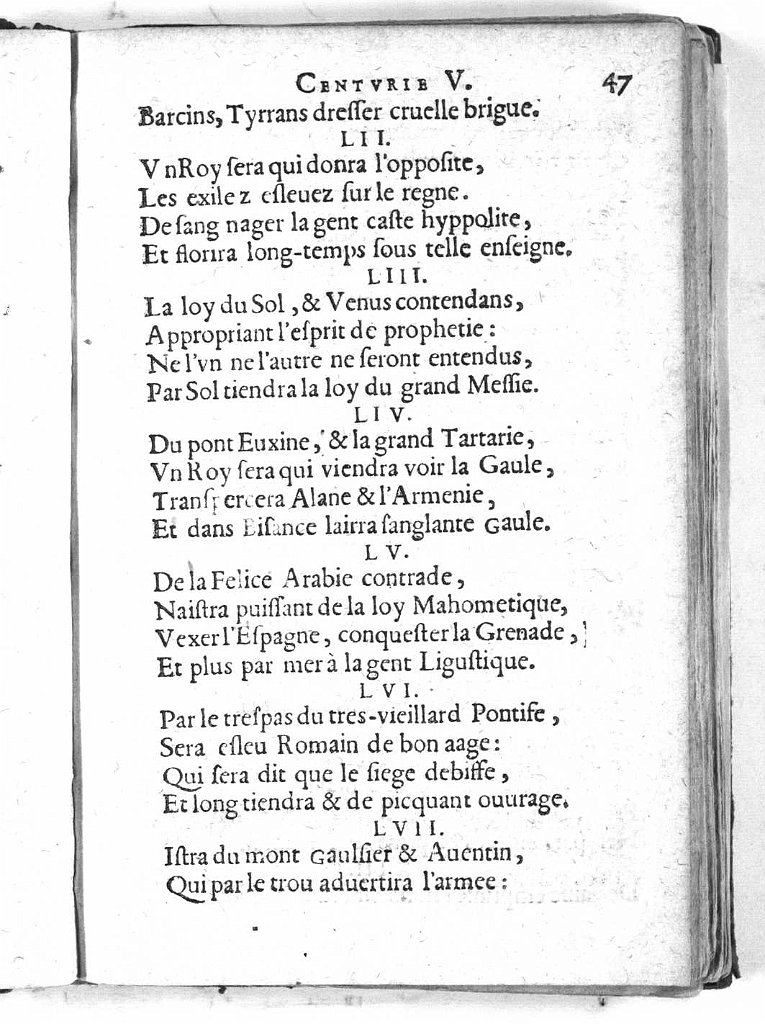 CENTVRIE V. 47
Barcins, Tyrrans dreſſer cruelle brigue.
LII.
VnRoy ſera qui donra l'oppoſite,
Les exilez eſleuez ſur le regne.
De ſang nager la gent caſte hyppolite,
Et florira long-temps ſous telle enſeigne.
LIII.
La loy du Sol, & Venus contendans,
Appropriant l'eſprit de prophetie:
Ne l'vn ne l'autre ne ſeront entendus,
Par Sol tiendra la loy du grand Meſſie.
LIV.
Du pont Euxine, & la grand Tartarie,
Vn Roy ſera qui viendra voir la Gaule,
Tranſpercera Alane & l'Armenie,
Et dans Biſance lairra ſanglante Gaule.
LV.
De la Felice Arabie contrade,
Naiſtra puiſſant de la loy Mahometique,
Vexer l'Eſpagne, conqueſter la Grenade,
Et plus par mer à la gent Liguſtique.
LVI.
Par le treſpas du tres-vieillard Pontife,
Sera eſleu Romain de bon aage:
Qui ſera dit que le ſiege debiffe,
Et long tiendra & de picquant ouurage.
LVII.
Iſtra du mont Gaulſier & Auentin,
Qui par le trou aduertira l'armee: